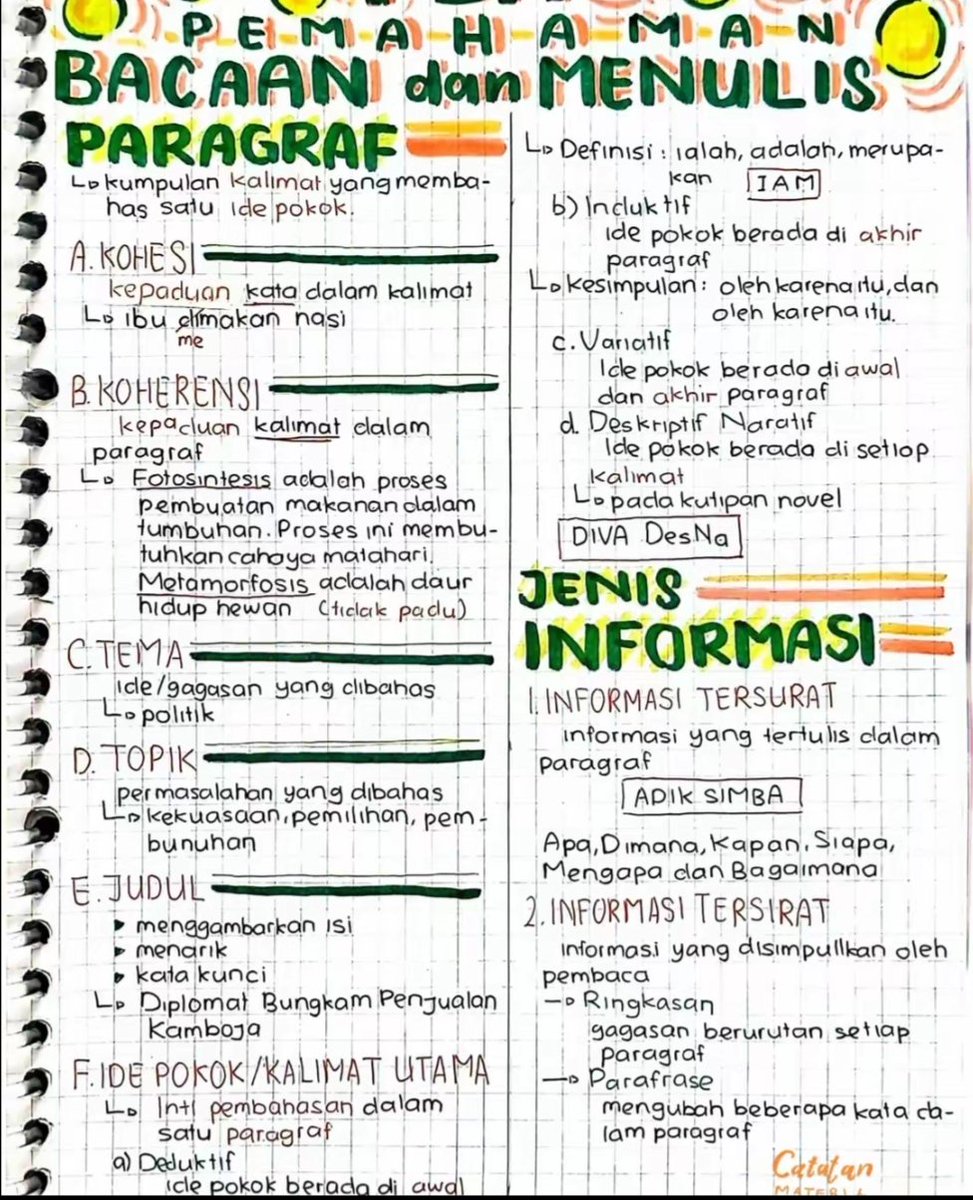 PEMAHAMAN
BACAAN dan MENULIS
PARAGRAF
↳ kumpulan kalimat yang memba-
has satu ide pokok.
A. KOHESI
kepaduan kata dalam kalimat
↳ ibu dimakan nasi
me
B. KOHERENSI
kepaduan kalimat dalam
paragraf
↳ Fotosintesis adalah proses
pembuatan makanan dalam
tumbuhan. Proses ini membu-
tuhkan cahaya matahari.
Metamorfosis adalah daur
hidup hewan (tidak padu)
C. TEMA
ide/gagasan yang dibahas
↳ politik
D. TOPIK
permasalahan yang dibahas
↳ kekuasaan, pemilihan, pem-
bunuhan
E. JUDUL
▸ menggambarkan isi
▸ menarik
▸ kata kunci
↳ Diplomat Bungkam Penjualan
Kamboja
F. IDE POKOK/KALIMAT UTAMA
↳ Inti pembahasan dalam
satu paragraf
a) Deduktif
ide pokok berada di awal
↳ Definisi : ialah, adalah, merupa-
kan IAM
b) Induktif
ide pokok berada di akhir
paragraf
↳ kesimpulan : oleh karena itu, dan
oleh karena itu.
c. Variatif
Ide pokok berada di awal
dan akhir paragraf
d. Deskriptif Naratif
Ide pokok berada di setiap
kalimat
↳ pada kutipan novel
DIVA DesNa
JENIS
INFORMASI
1. INFORMASI TERSURAT
informasi yang tertulis dalam
paragraf
ADIK SIMBA
Apa, Dimana, Kapan, Siapa,
Mengapa dan Bagaimana
2. INFORMASI TERSIRAT
informasi yang disimpullkan oleh
pembaca
→ Ringkasan
gagasan berurutan setiap
paragraf
→ Parafrase
mengubah beberapa kata da-
lam paragraf
Catatan
MATERI